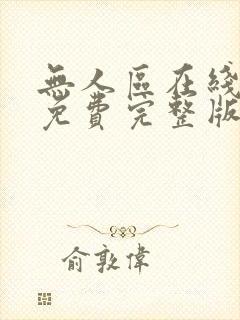 無人區在綫
免費完整版
俞敦偉